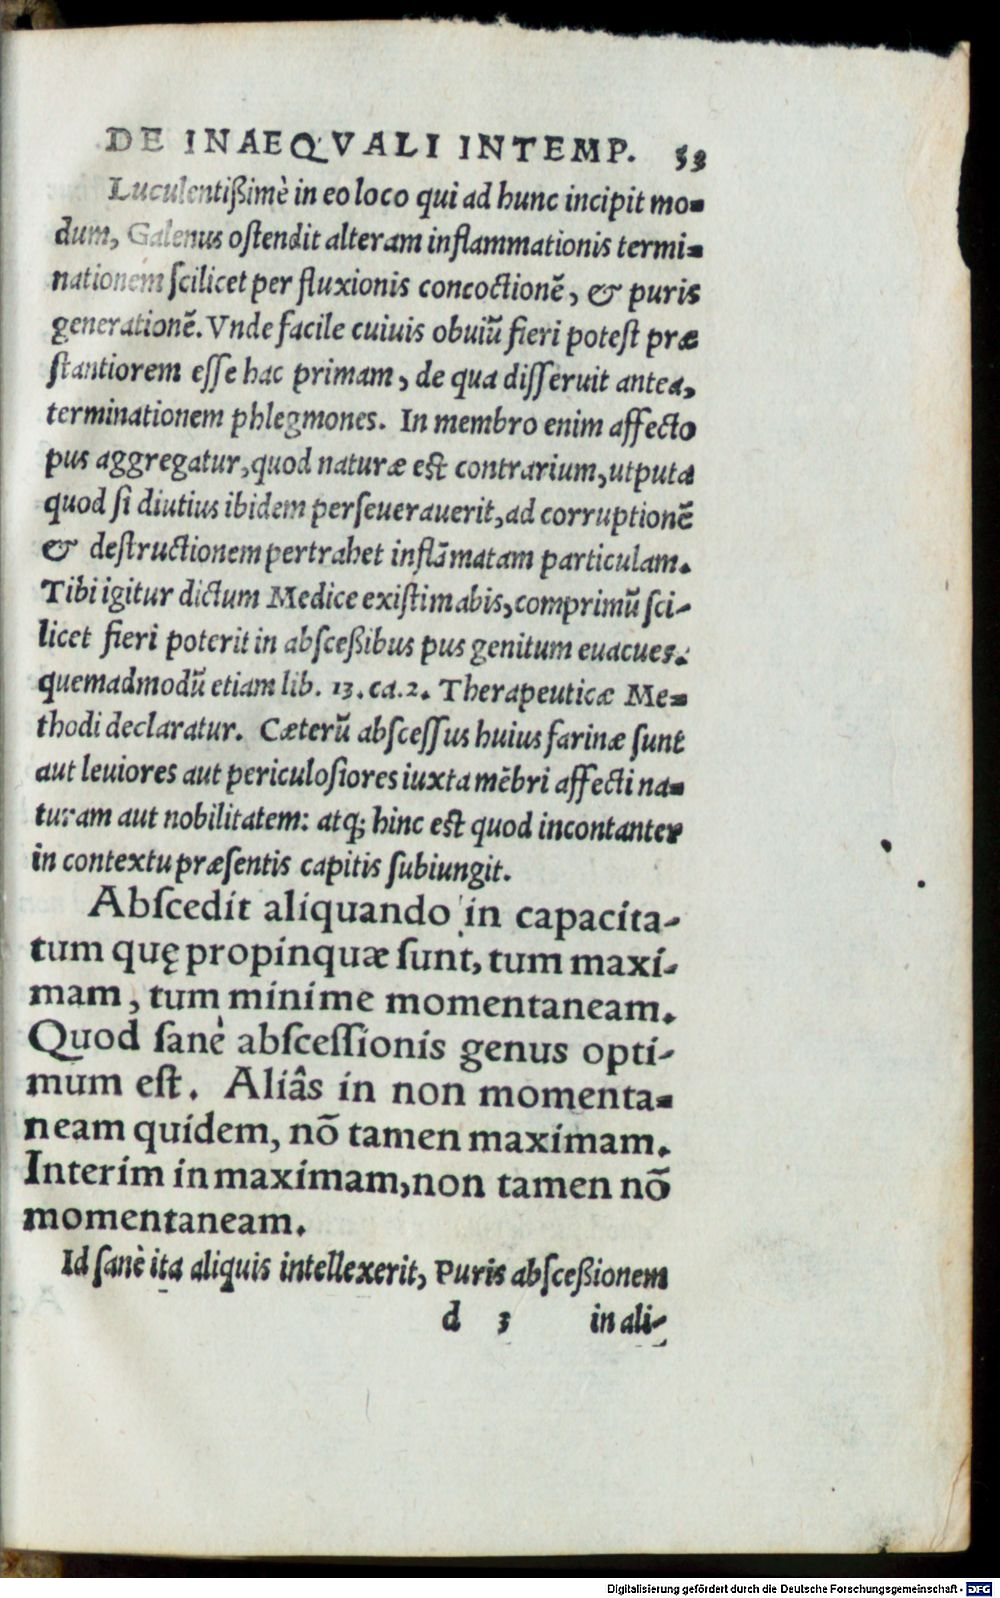 DE INAEQVALI INTEMP. 53
Luculentißimè in eo loco qui ad hunc incipit mo-
dum, Galenus oſtendit alteram inflammationis termi-
nationem ſcilicet per fluxionis concoctionē, & puris
generationē. Vnde facile cuiuis obuiū fieri poteſt præ
ſtantiorem eſſe hac primam, de qua diſſeruit antea,
terminationem phlegmones. In membro enim affecto
pus aggregatur, quod naturæ eſt contrarium, utputa
quod ſi diutius ibidem perſeuerauerit, ad corruptionē
& deſtructionem pertrahet inflāmatam particulam.
Tibi igitur dictum Medice exiſtimabis, comprimū ſci-
licet fieri poterit in abſceßibus pus genitum euacues:
quemadmodū etiam lib. 13. ca. 2. Therapeuticæ Me-
thodi declaratur. Cæterū abſceſſus huius farinæ ſunt
aut leuiores aut periculoſiores iuxta mēbri affecti na-
turam aut nobilitatem: atq; hinc eſt quod incontanter
in contextu præſentis capitis ſubiungit.
Abſcedit aliquando in capacita-
tum quę propinquæ ſunt, tum maxi-
mam, tum minime momentaneam.
Quod ſanè abſceſſionis genus opti-
mum eſt. Aliâs in non momenta-
neam quidem, nō tamen maximam.
Interim in maximam, non tamen nō
momentaneam.
Id ſanè ita aliquis intellexerit, Puris abſceßionem
d 3 in ali-
Digitalisierung gefördert durch die Deutsche Forschungsgemeinschaft - DFG